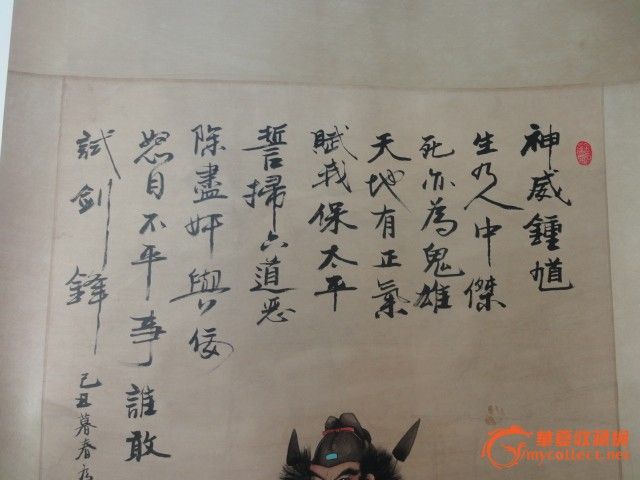 神威鍾馗
生乃人中傑
死亦為鬼雄
天地有正氣
賦我保太平
誓掃六道惡
除盡奸與佞
怒目不平事誰敢
試劍鋒
己丑暮春
華夏收藏網
mycollect.net